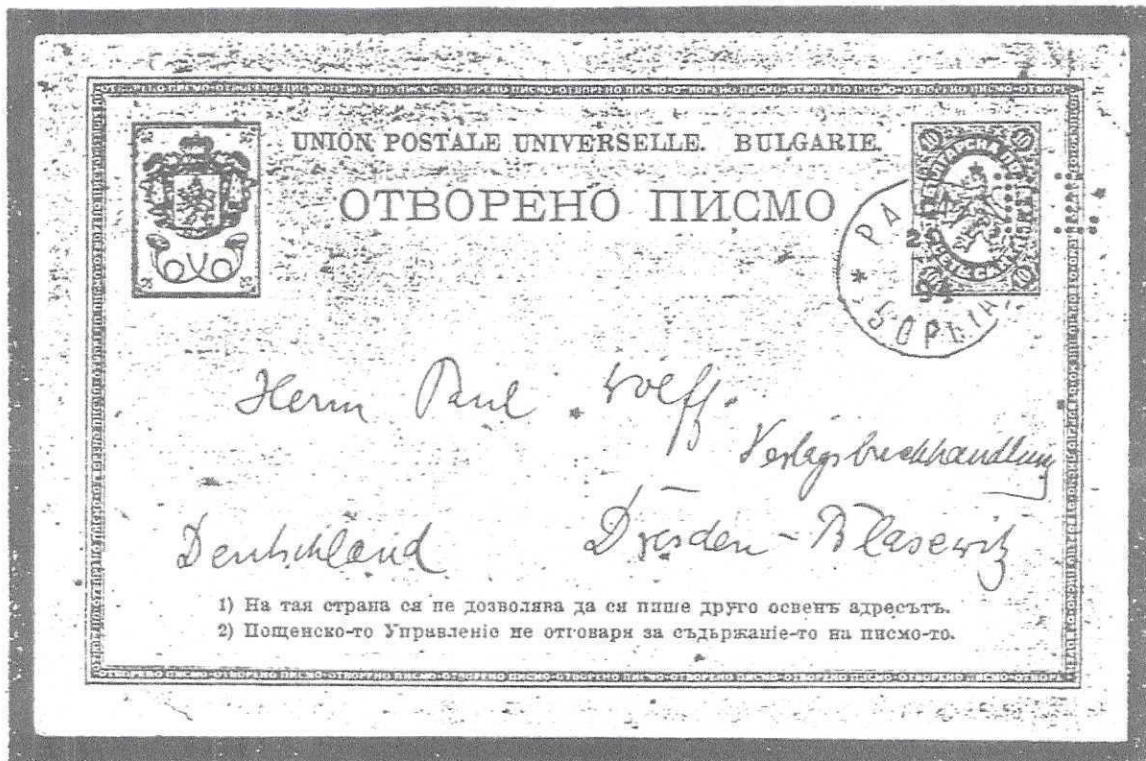 UNION POSTALE UNIVERSELLE. BULGARIE.
ОТВОРЕНО ПИСМО
10 10
10 10
Herrn Paul Wolff.
Verlagsbuchhandlung
Deutschland Dresden-Blasewitz
1) На тая страна ся не дозволява да ся пише друго освенъ адресътъ.
2) Пощенско-то Управленіе не отговаря за съдържаніе-то на писмо-то.